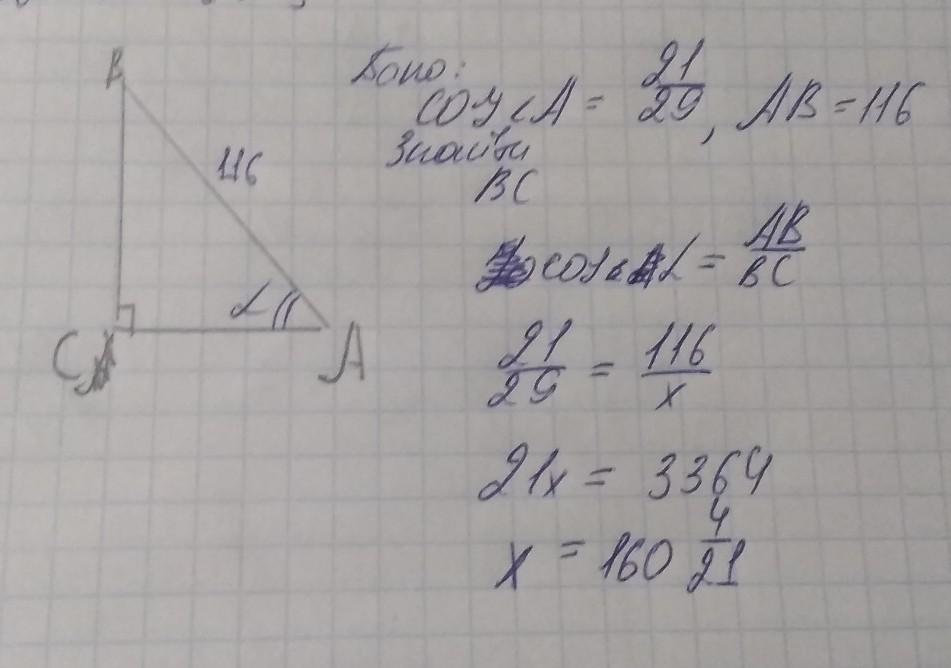 B
116
α
C
A
Дано:
cos<A = 21/29, AB = 116
Знайти
BC
cos<α = AB/BC
21/29 = 116/x
21x = 3364
x = 160 4/21